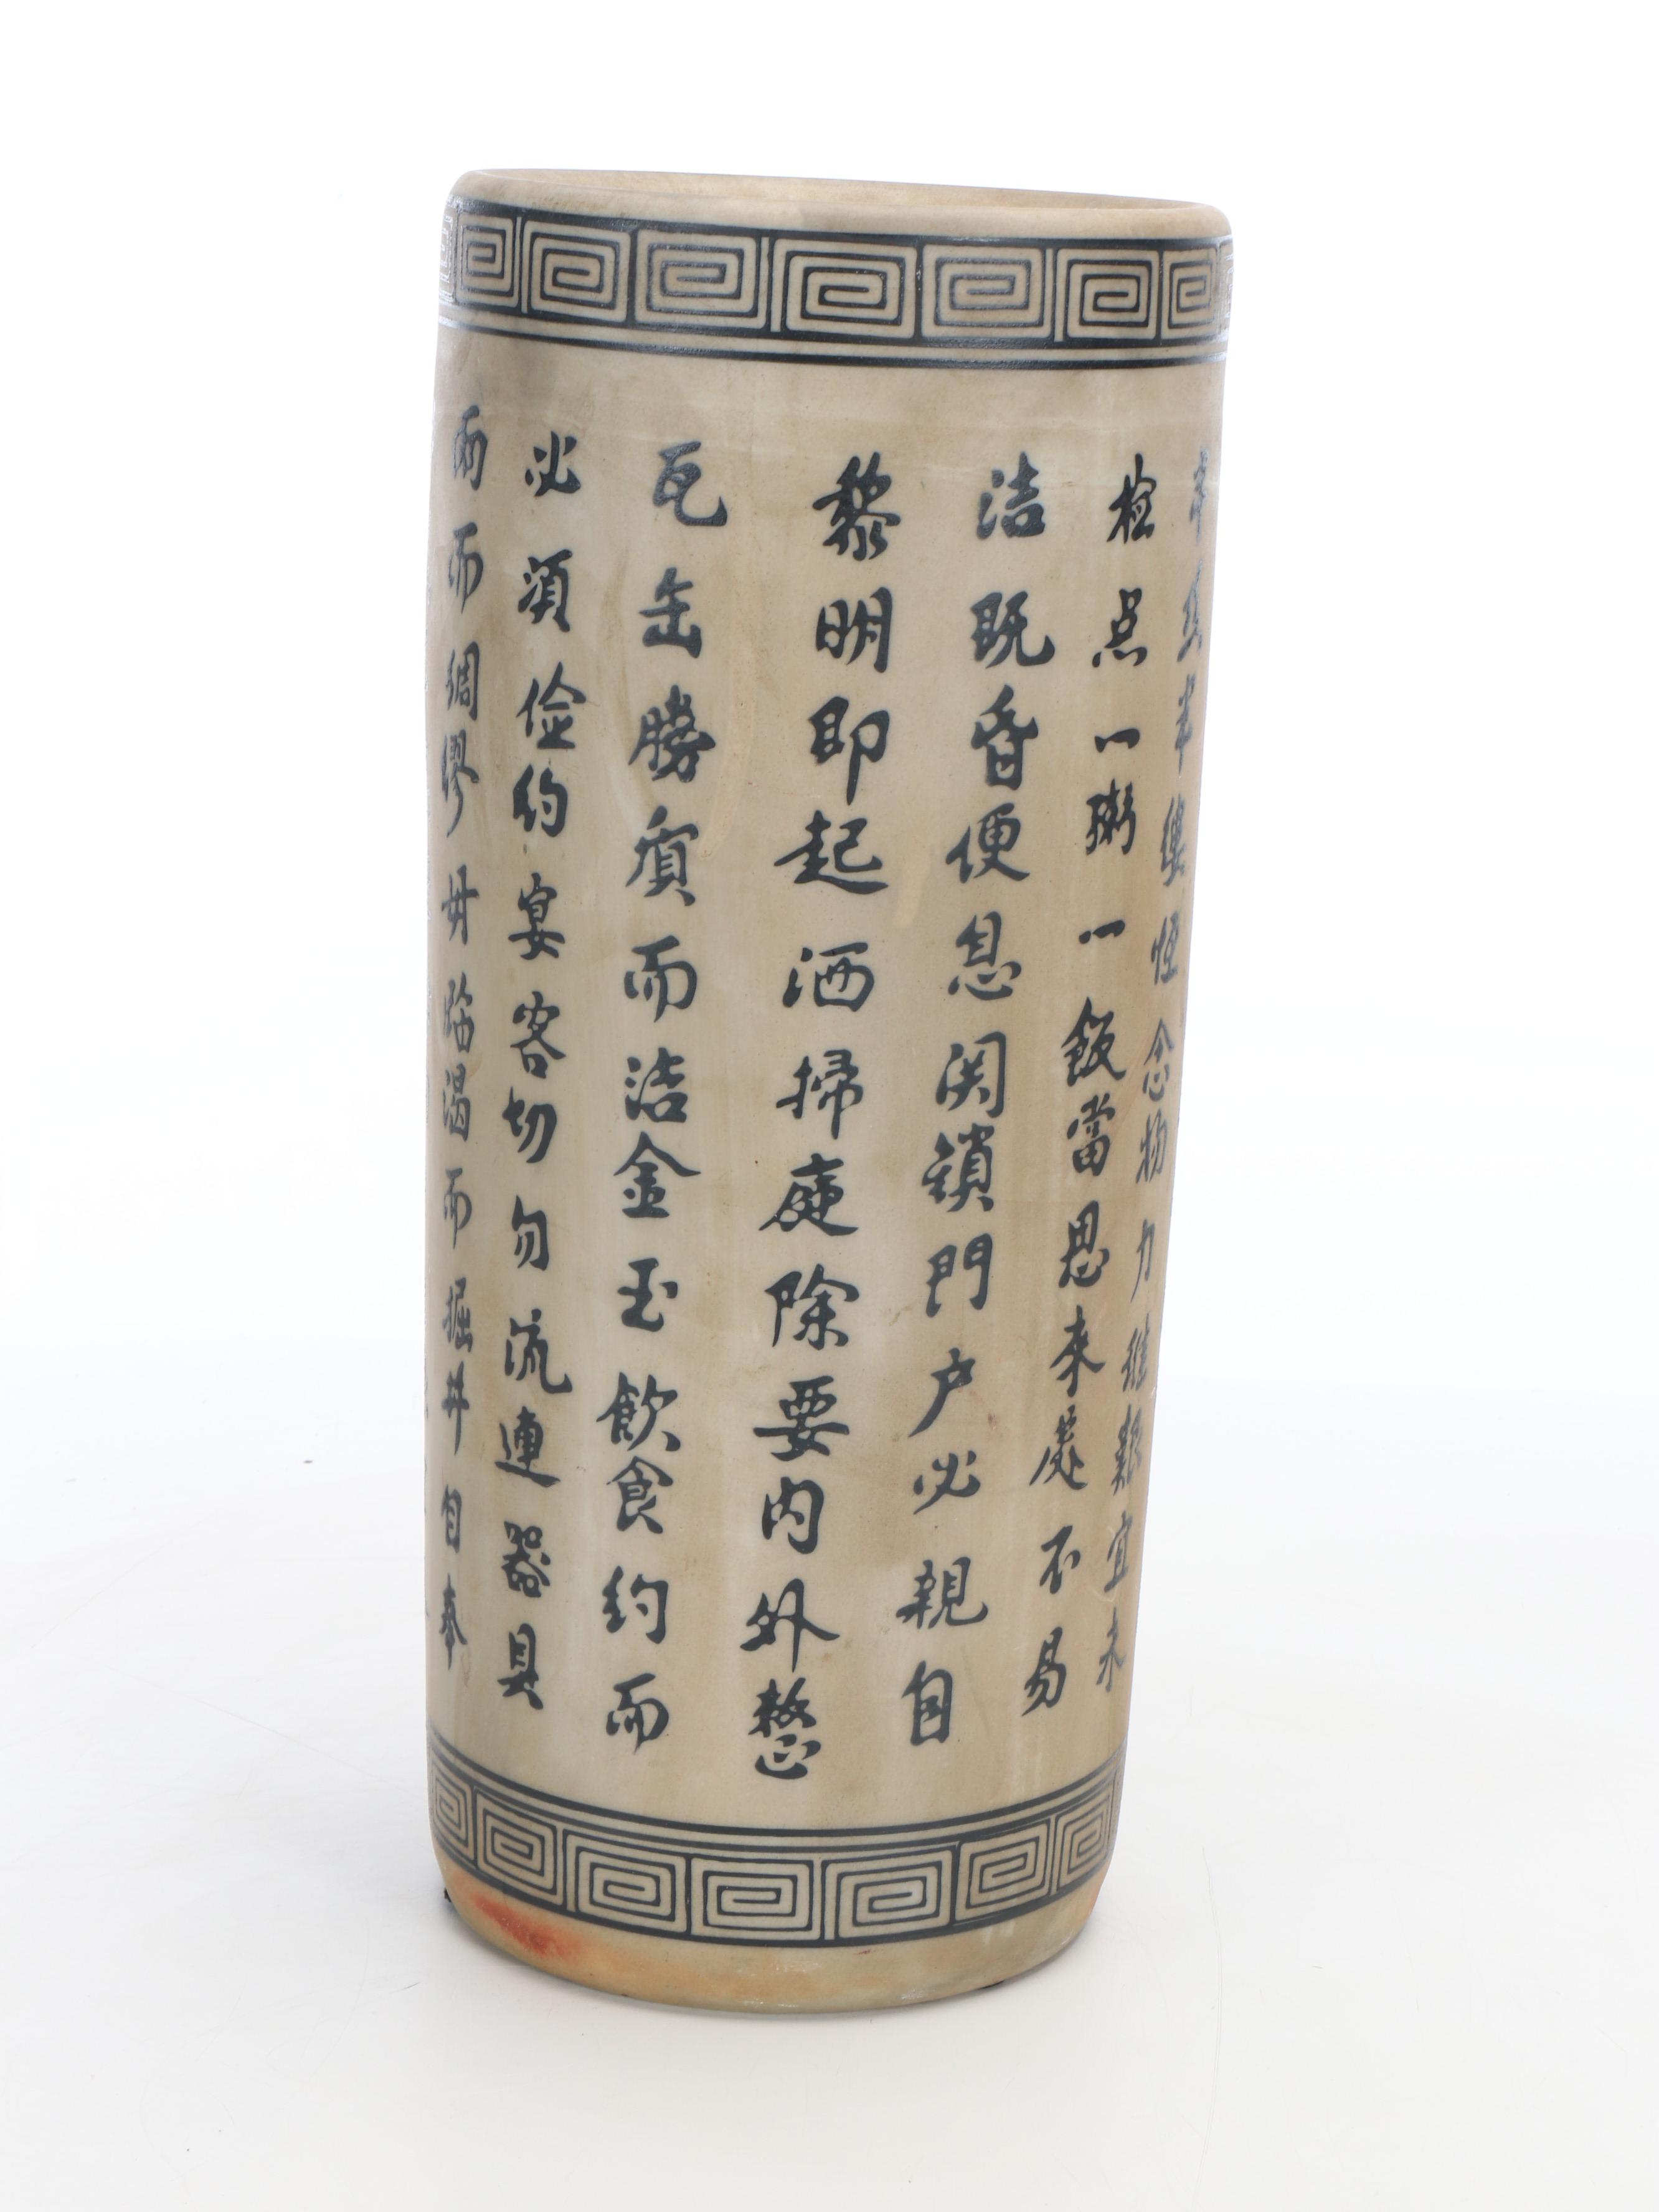 雨而綢繆毋临渴而掘井自奉
必須俭約宴客切勿流連器具
瓦缶勝質而洁金玉飲食約而
黎明即起洒掃庭除要内外整
洁既昏便息関鎖門户必親自
检点一粥一飯當思来處不易
半絲半縷恆念物力維艱宜未